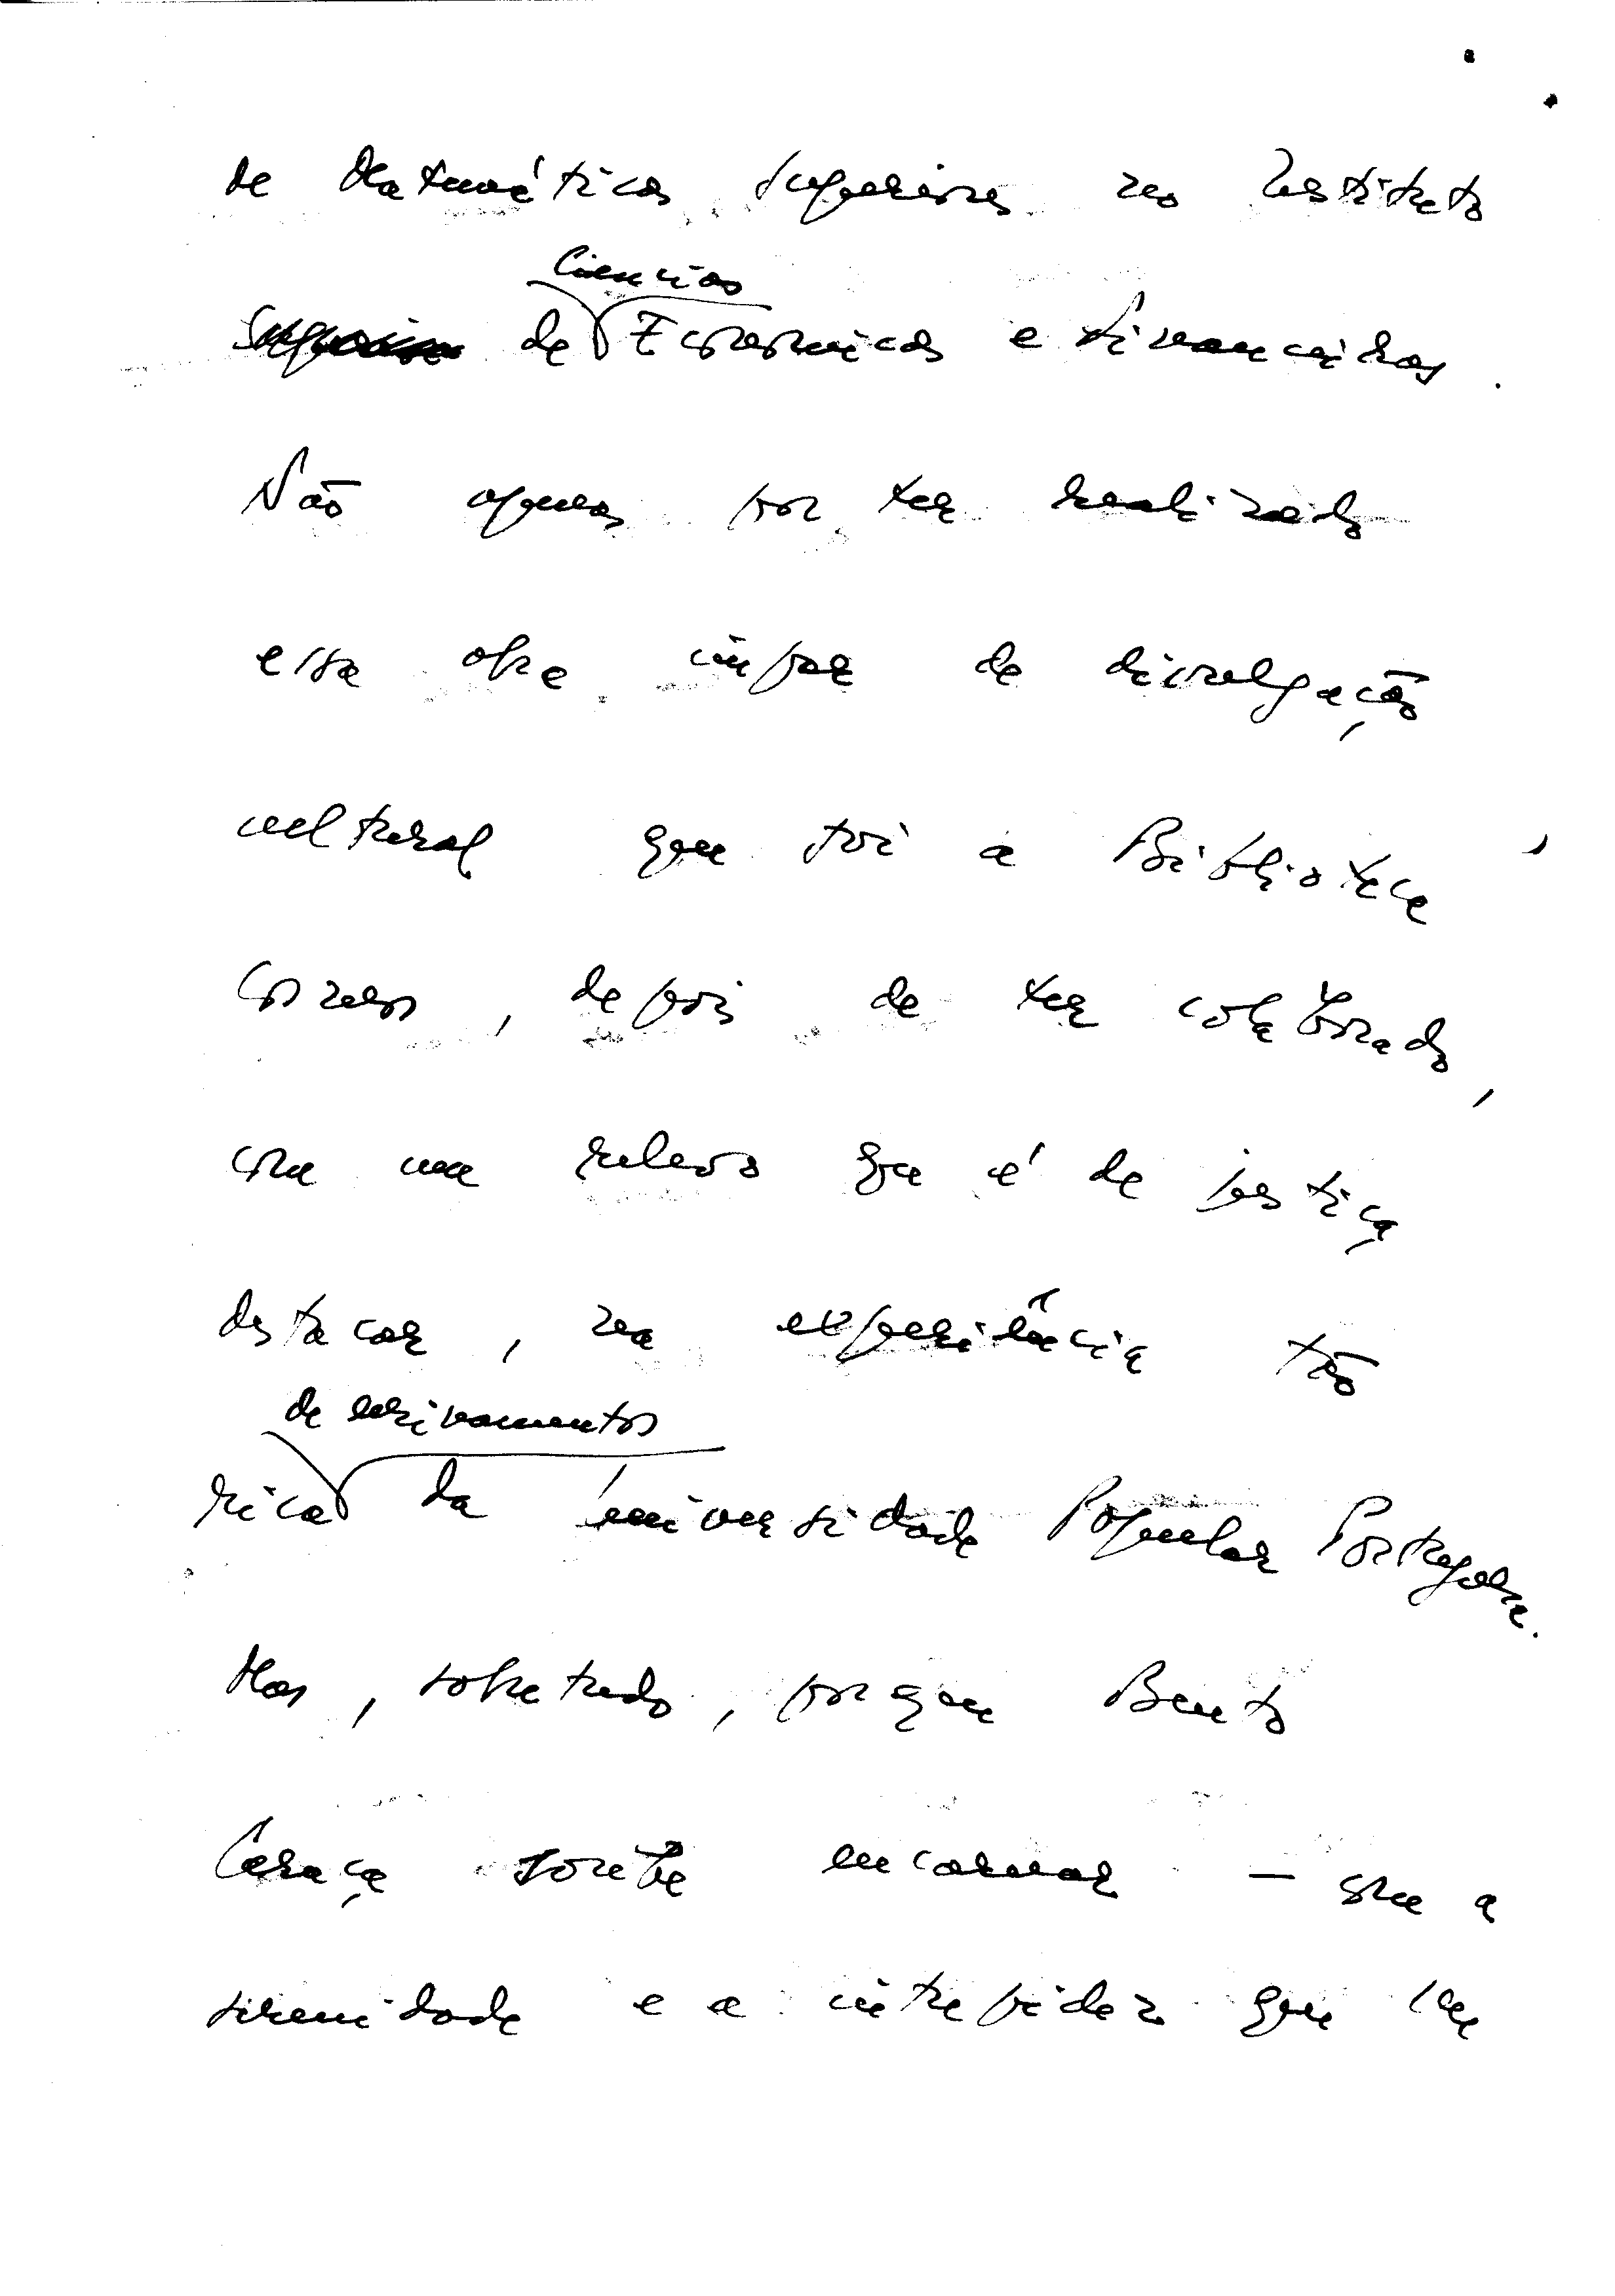 de Matemáticas Superiores no Instituto
Ciencias
Superior de Economicas e Financeiras.
Não apenas por ter realizado
essa obra ímpar de divulgação
cultural que foi a Biblioteca
Cosmos, depois de ter colaborado,
com um relevo que é de justiça
destacar, na experiência tão
de ensinamentos
rica da Universidade Popular Portuguesa.
Mas, sobretudo, porque Bento
Caraça soube encarnar – com a
serenidade e a intrepidez que lhe